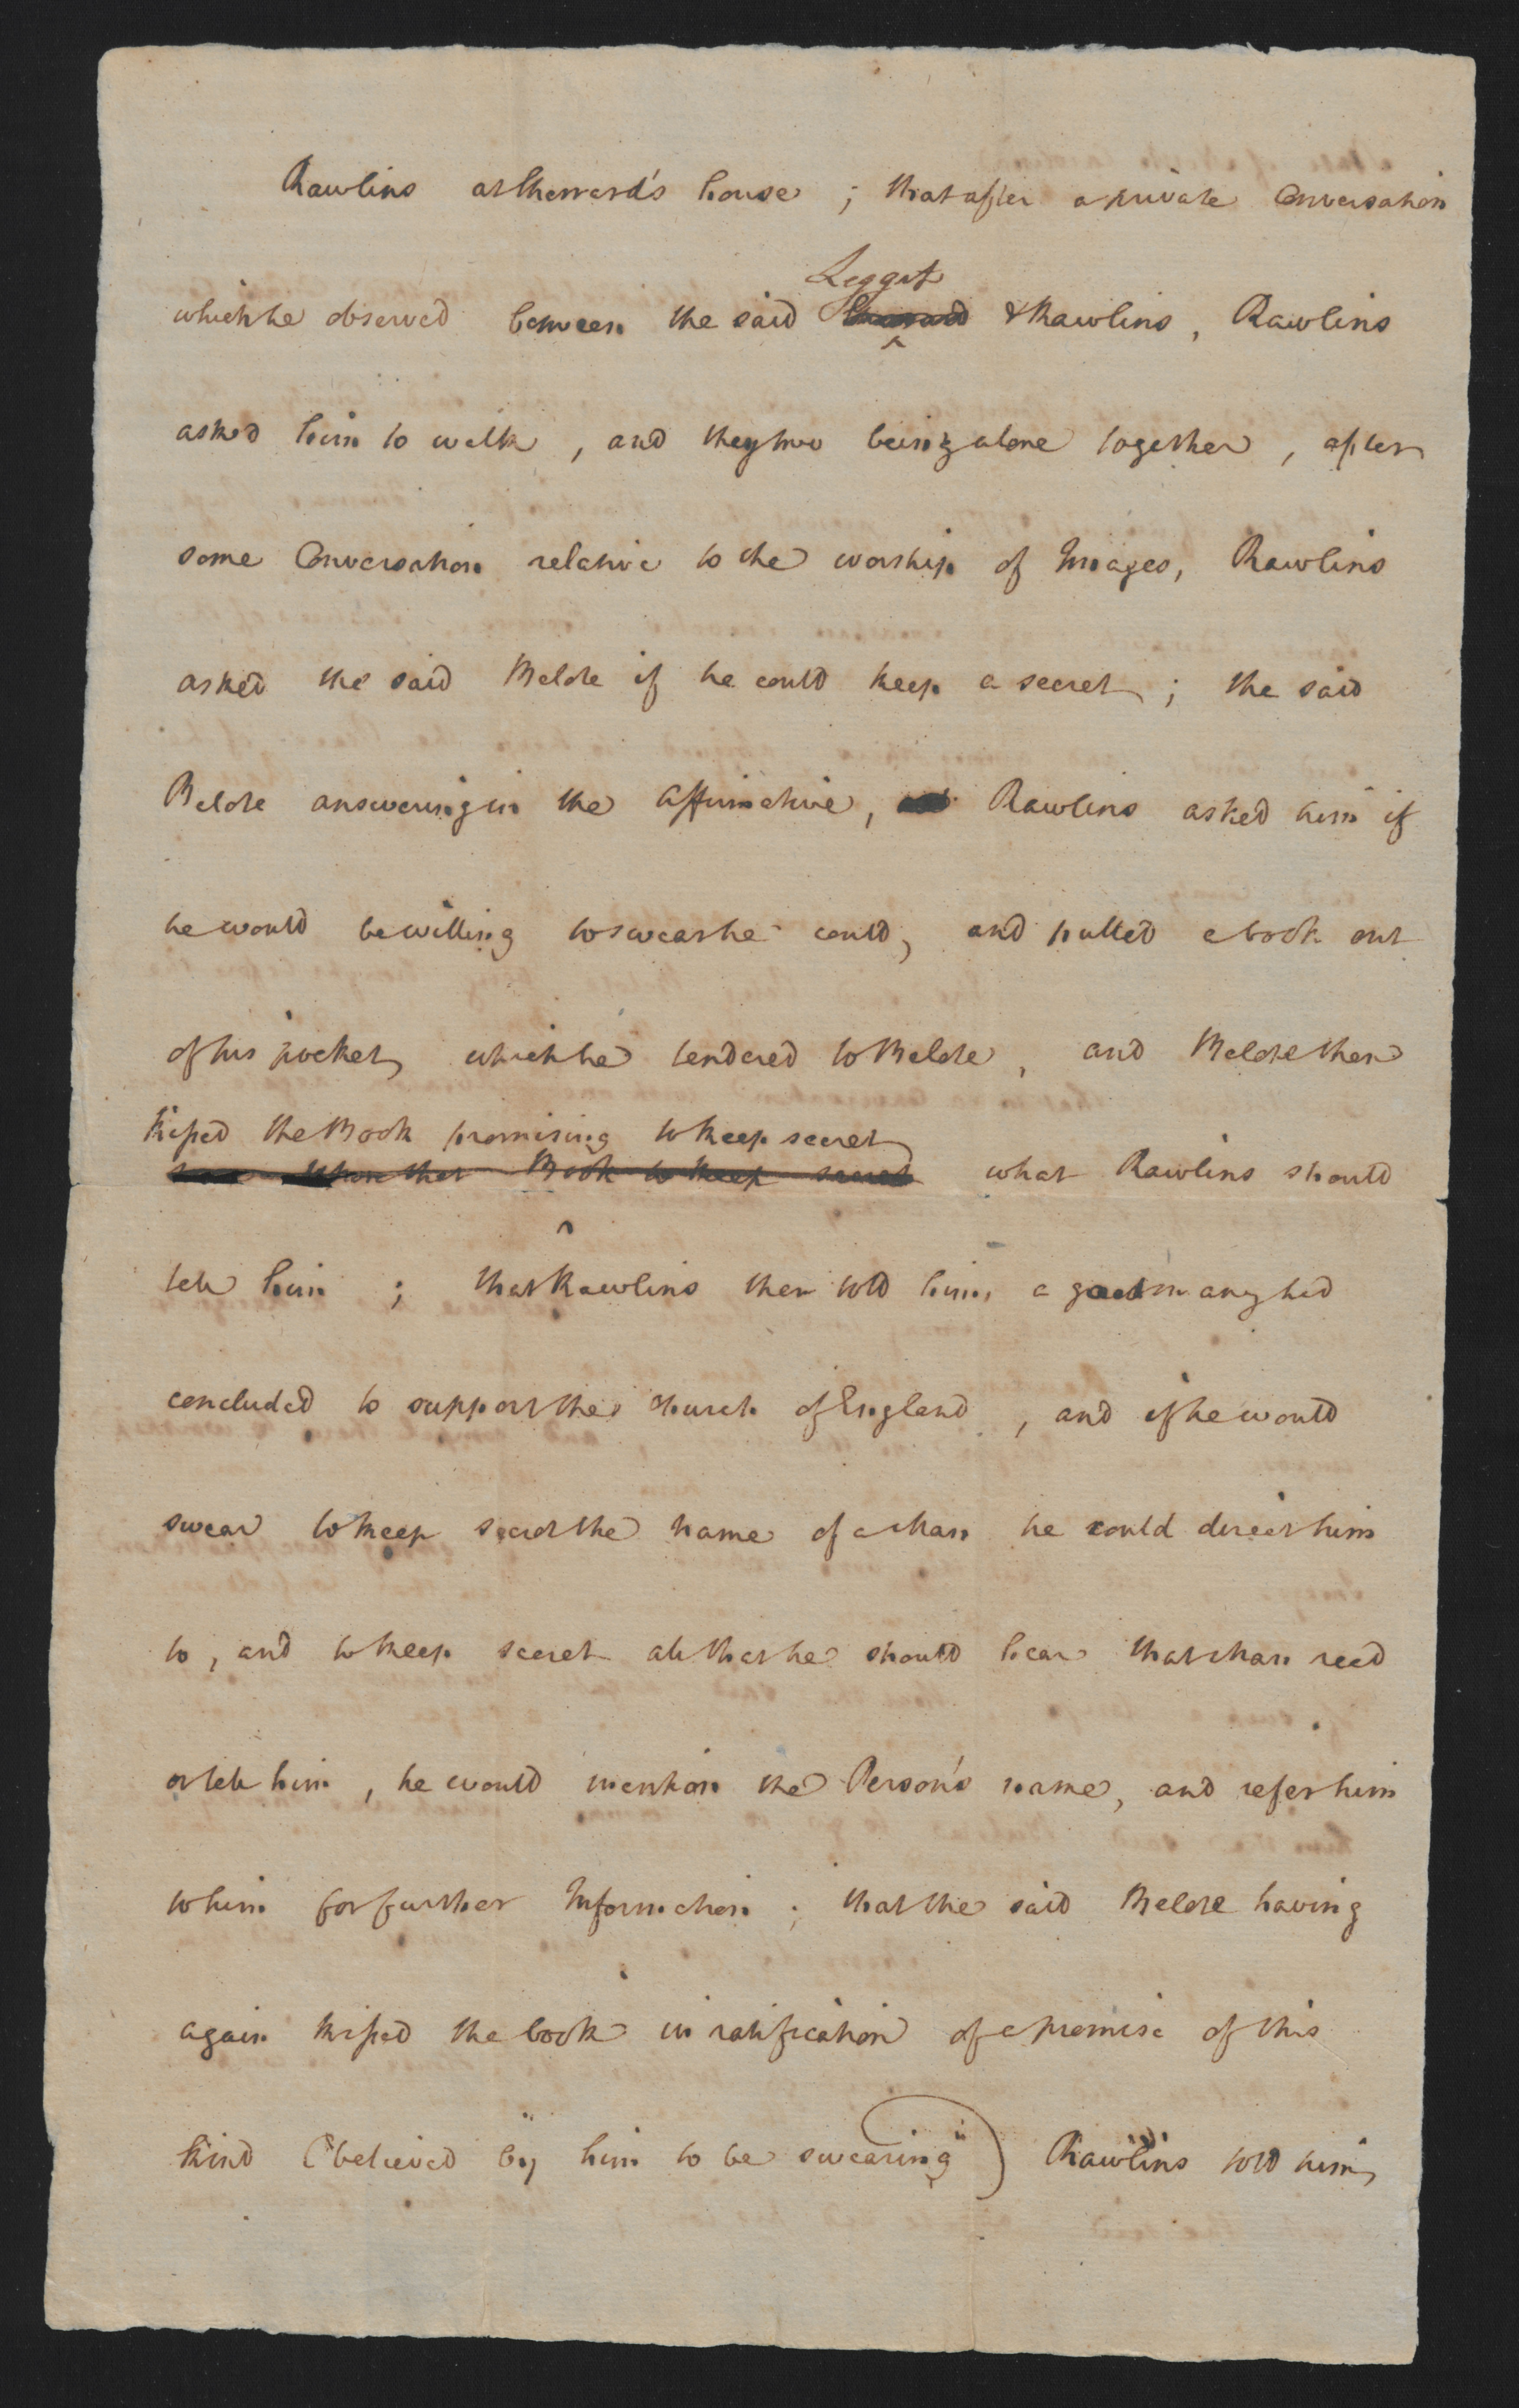 Rawlins at Sherrard's house ; that after a private Conversation
which he observed between the said Leggat & Rawlins, Rawlins
asked him to walk , and they two being alone together , after
some Conversation relative to the worship of Images, Rawlins
asked the said Belote if he could keep a secret ; the said
Belote answering in the affirmative, Rawlins asked him if
he would be willing to swear he could, and pulled a book out
of his pocket, which he tendered to Belote , and Belote then
kissed the Book promising to keep secret
Upon that Book to keep secret what Rawlins should
tell him ; that Rawlins then told him, a good many had
concluded to support the Church of England , and if he would
swear to keep secret the name of a Man he could direct him
to , and to keep secret all that he should hear that Man read
or tell him , he would mention the Person's name, and refer him
to him for further Information ; that the said Belote having
again kissed the book in ratification of a promise of this
kind ("believed by him to be swearing") Rawlins told him,